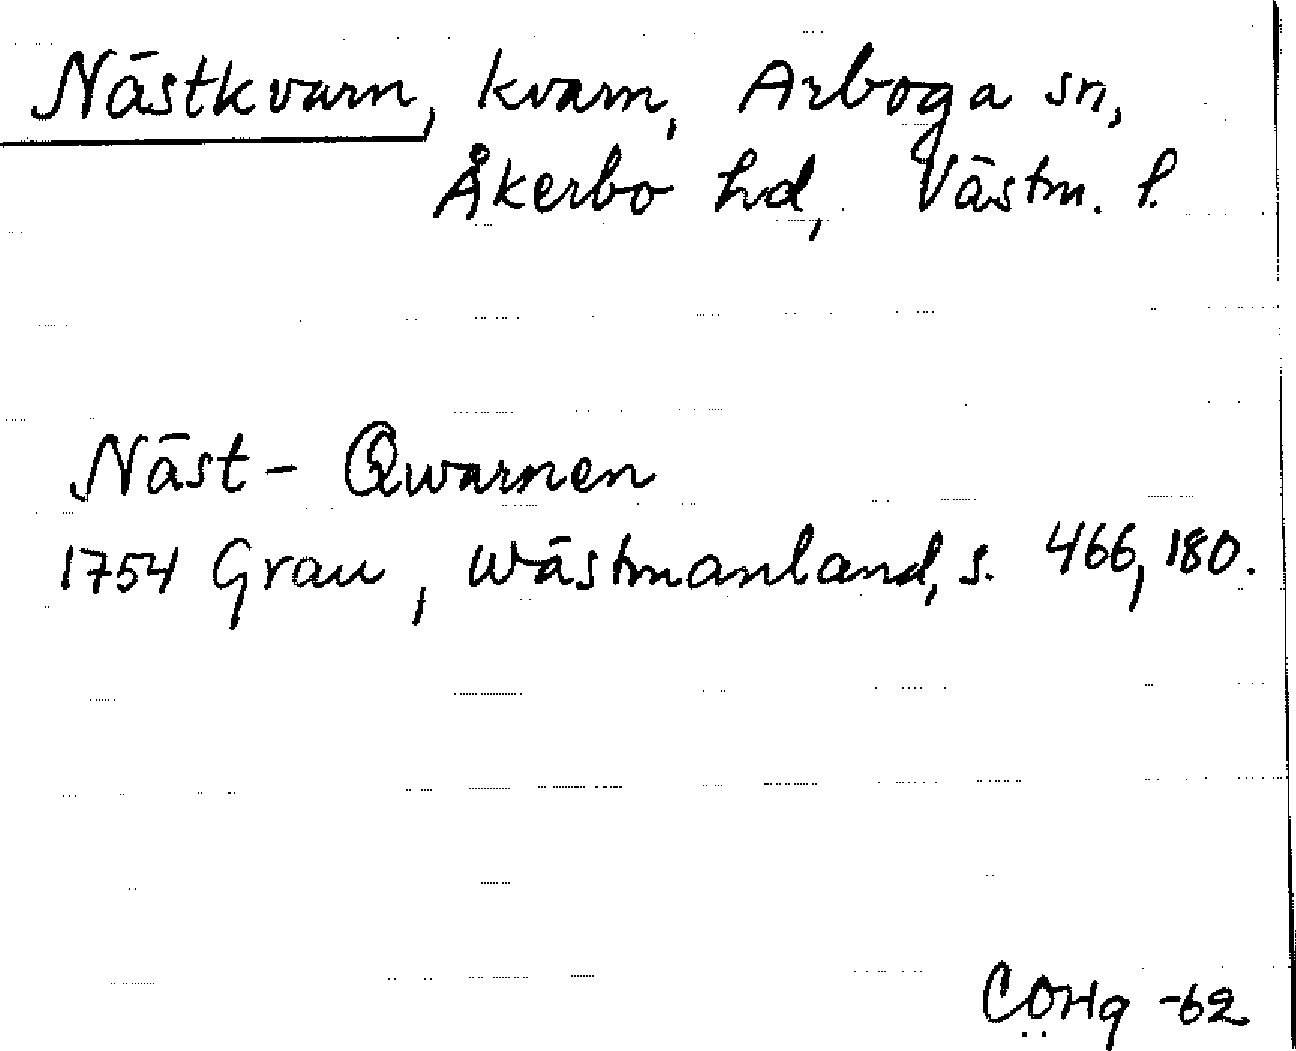 Nästkvarn, kvarn, Arboga sn,
Åkerbo hd, Västm. l.
Näst- Qwarnen
1754 Grau, Wästmanland, s. 466, 180.
CÖHg -62